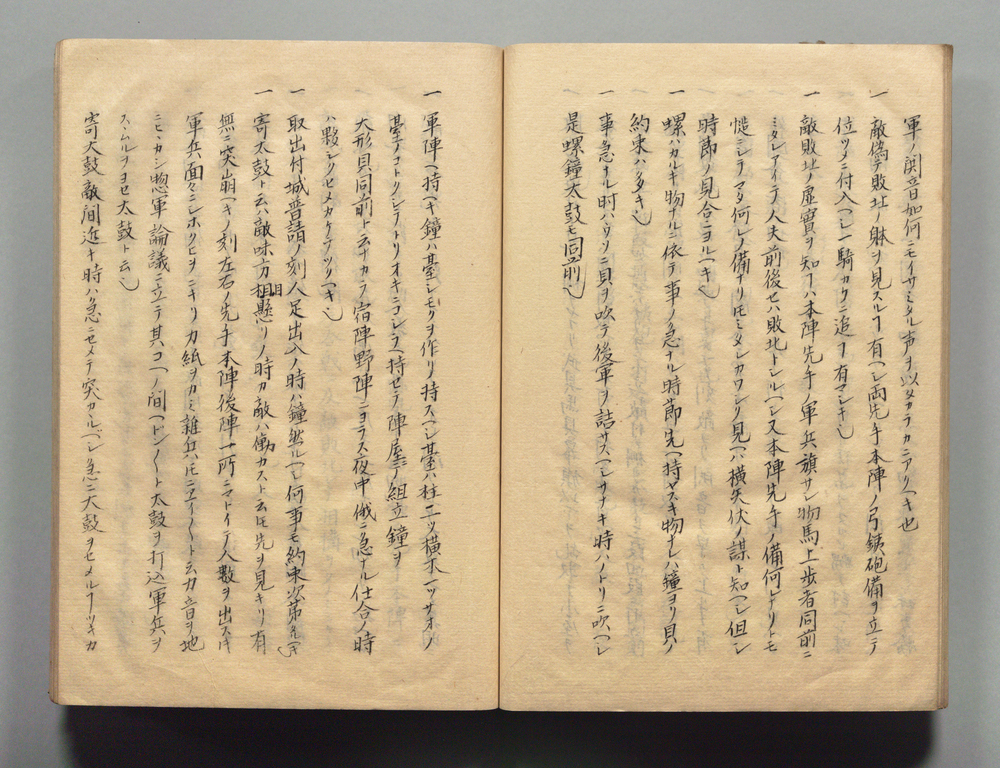 軍ノ関音如何ニモイサミタル声ヲ以タカラカニアクヘキ也
一 敵偽テ敗北ノ躰ヲ見スルヿ有ヘシ両先手本陣ノ弓鉄砲備ヲ立テ
位ツメニ付入ヘシ一騎カケニ追ヿ有マシキ也
一 敵敗北ノ虚實ヲ知ヿハ本陣先手ノ軍兵旗サシ物馬上歩者同前ニ
ミタレアイテ人夫前後セハ敗北トシルヘシ又本陣先手ノ備何レナリトモ
時節ノ見合ニヨルヘキ也
一 螺ハカルキ物ナルニ依テ事ノ急ナル時節先ヘ持ヘスキ物ナレハ鐘ヨリ貝ノ
約束ハ多キ也
一 事急ナル時ハウツニ貝ヲ吹テ後軍ヲ詰サスヘシサナキ時ハノトリニ吹ヘシ
是螺鐘太鼓モ同前也
一 軍陣ヘ持ヘキ鐘ハ臺シモクヲ作リ持スヘシ臺ハ柱二ツ横木一ツサオノ
臺テコトリシテトリオキニコシラヘ持セテ陣屋ニテ組立鐘ヲ
大形貝同前ト云ナカラ宿陣野陣ニヨラス夜中俄ニ急ナル仕合ノ時
ハ夥シクセメカケテツクヘキ也
一 取出付城普請ノ刻人足出入ノ時ハ鐘然ルヘシ何事モ約束次第タルヘキ也
一 寄太鼓ト云ハ敵味方相懸リノ時カ敵ハ働カスト云トモ先ヲ見キリ有
無ニ突崩ヘキノ刻左右ノ先手本陣後陣一所ニマトイテ人数ヲ出スキ
軍兵面々ニシホクヒヲニキリカ紙ヲカミ雑兵ハトモニヱイ〱ト云力音ヲ地
ニヒヽカシ惣軍論議ニ立テ其コヘノ間ヘドン〱ト太鼓ヲ打込軍兵ヲ
スヽムルヲヨセ太鼓ト云也
寄大鼓敵间近キ時ハ急ニセメテ突カヽルヘシ急ニ大鼓ヲセメルヿツキカ